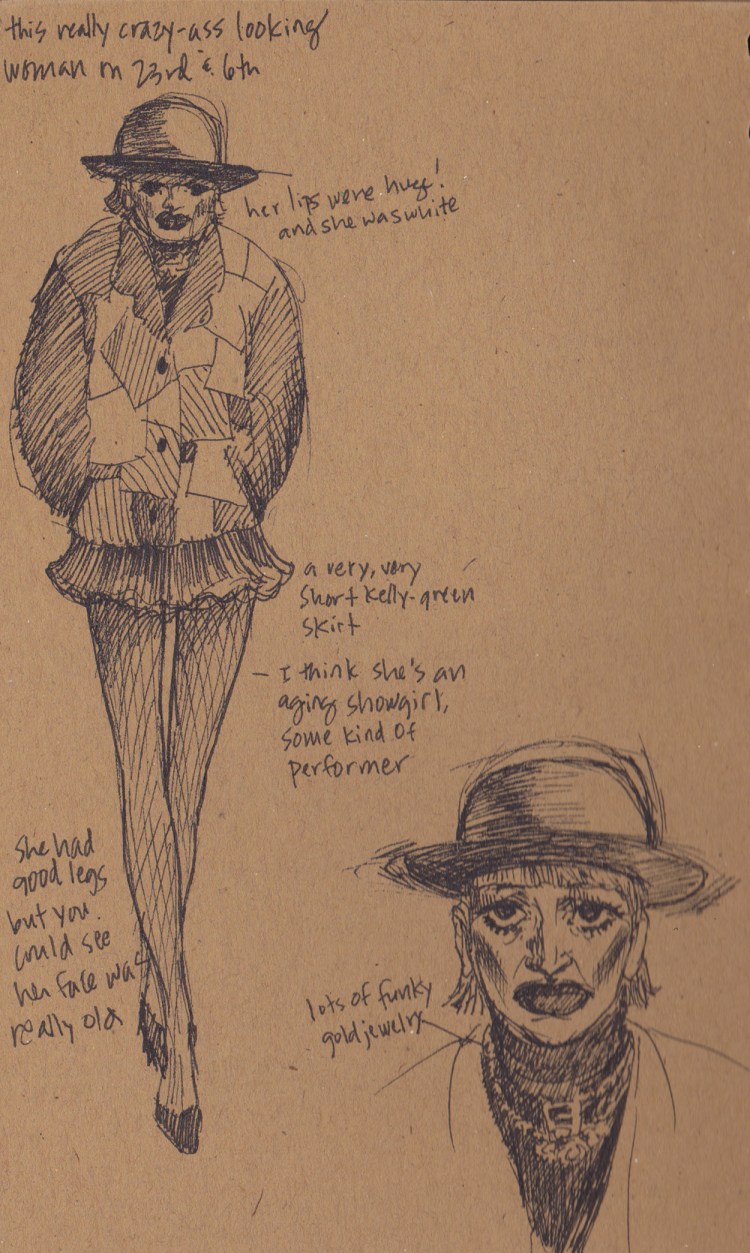 this really crazy-ass looking
woman on 23rd & 6th
her lips were huge!
and she was white
a very, very
short kelly-green
skirt
- I think she's an
aging showgirl,
some kind of
performer
she had
good legs
but you
could see
her face was
really old
lots of funky
gold jewelry